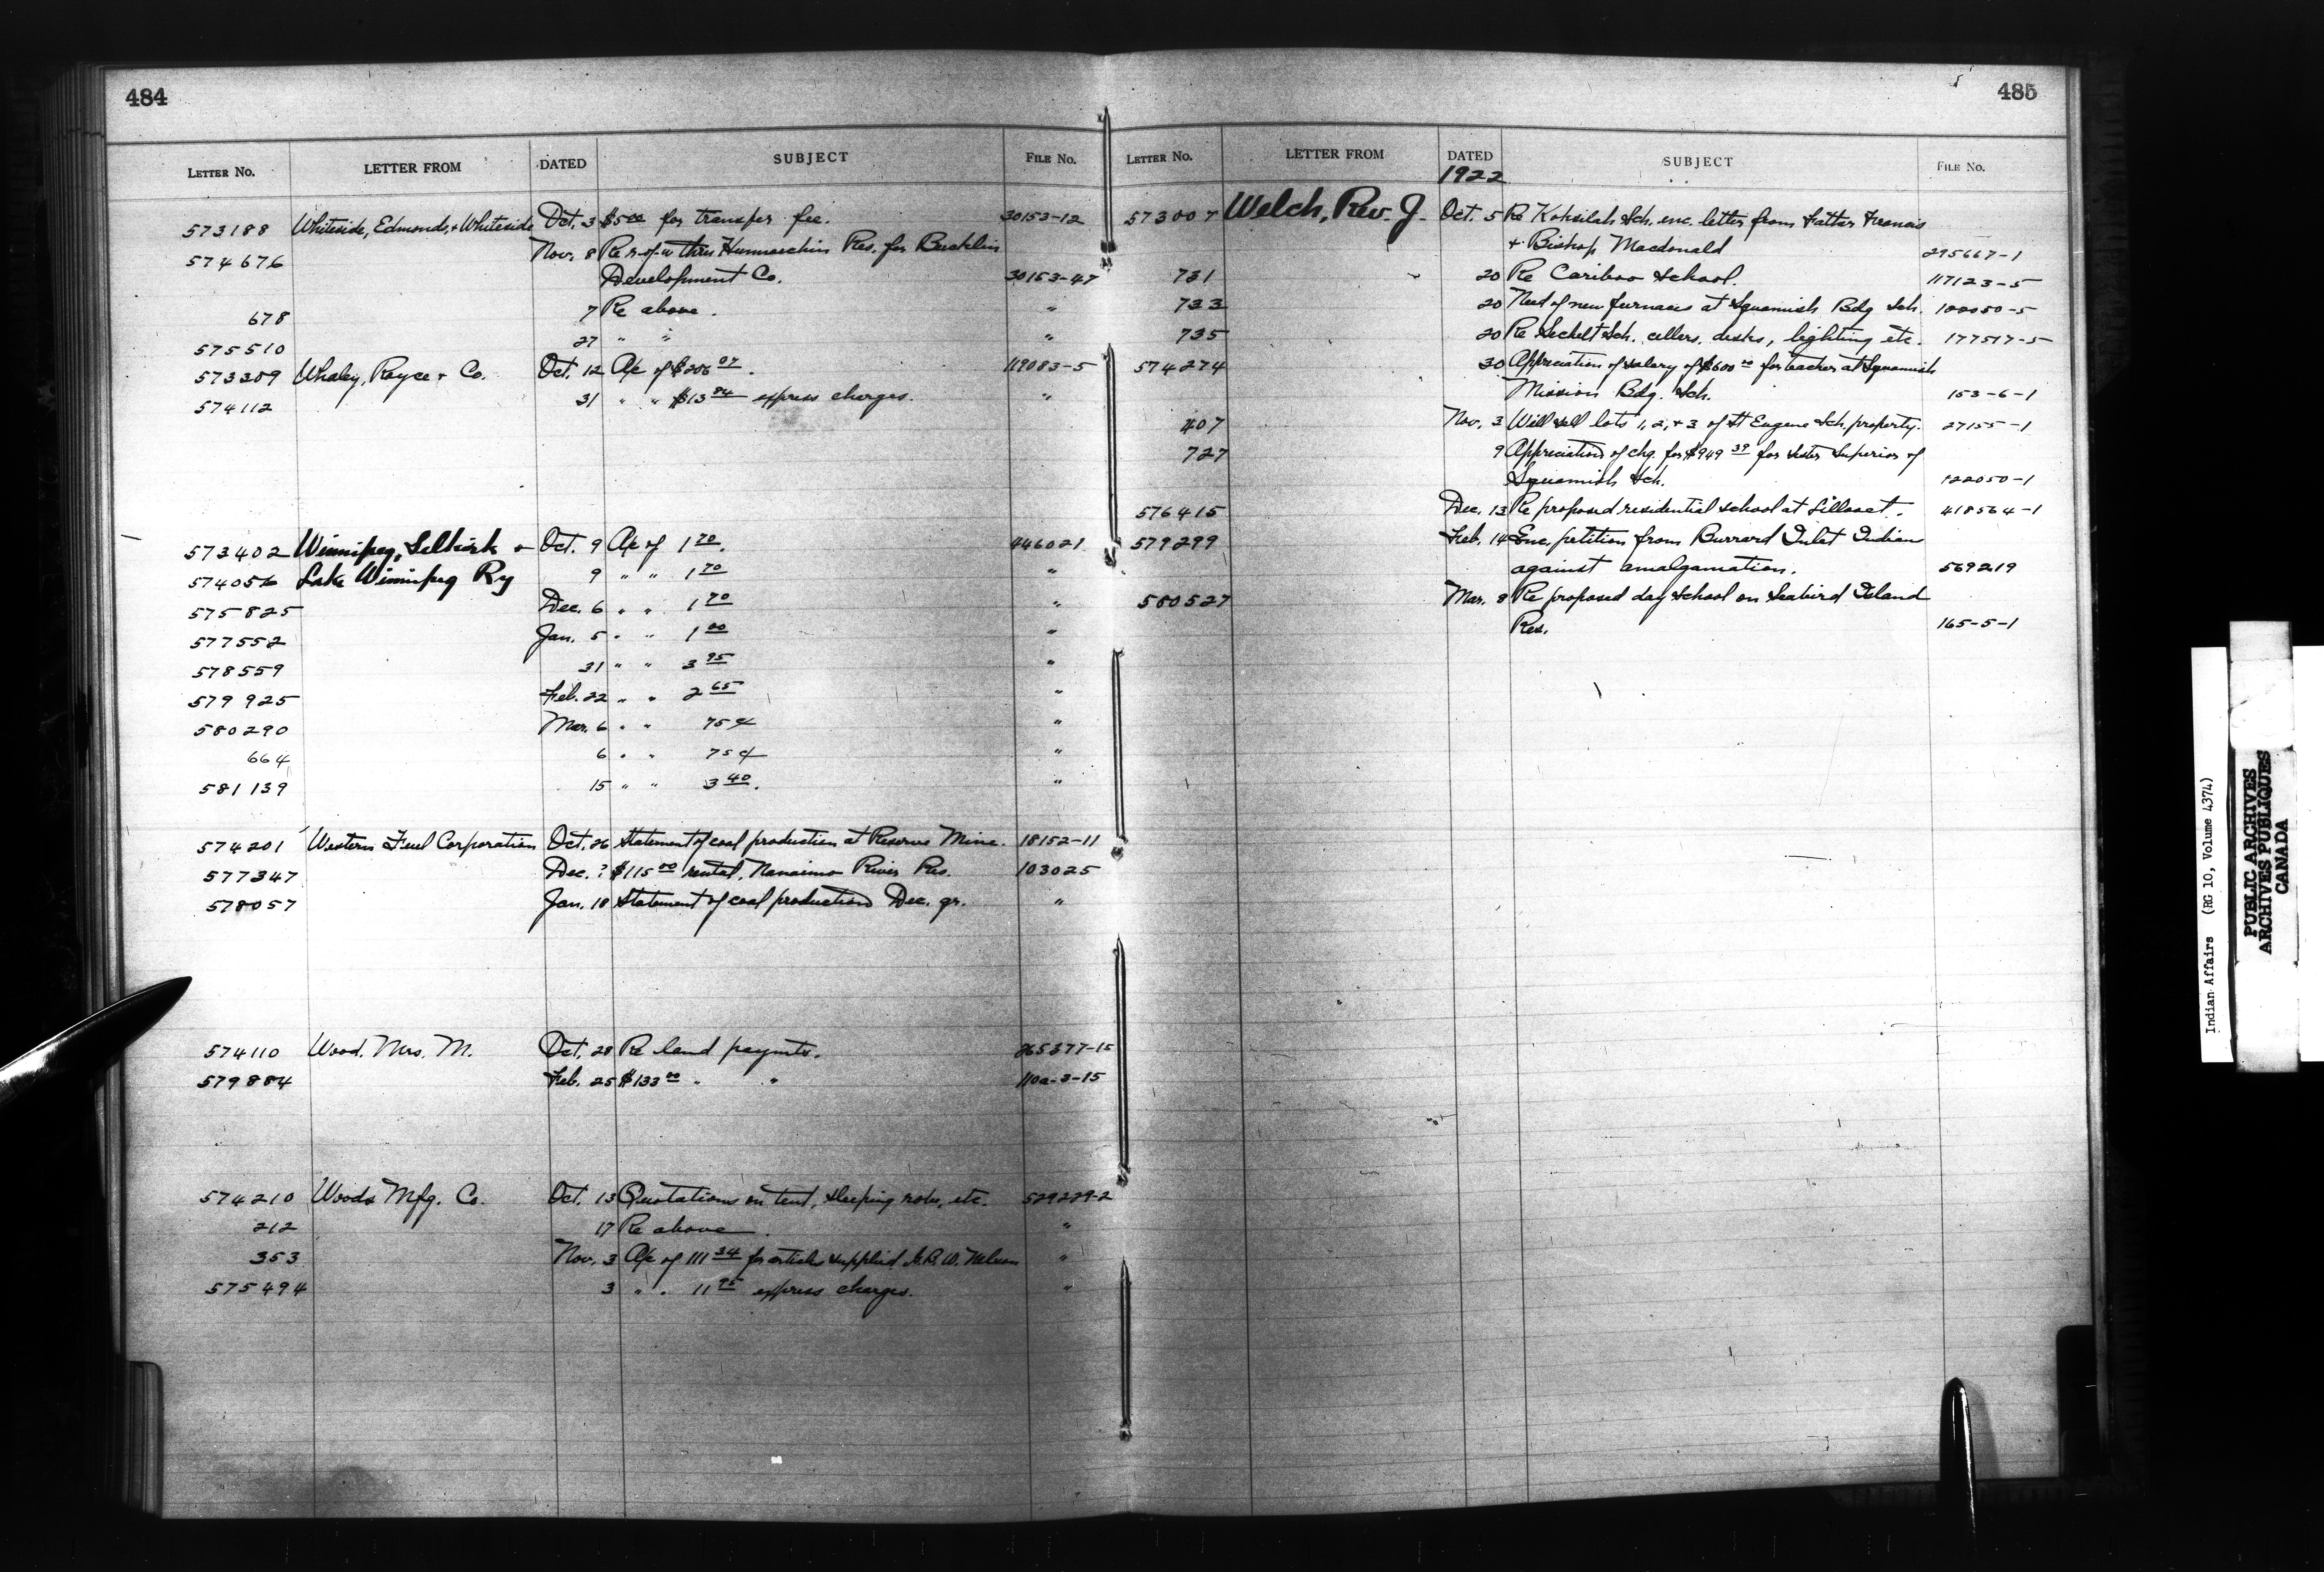 484
LETTER NO. LETTER FROM DATED SUBJECT FILE NO.
573188 Whiteside, Edmonds, + Whiteside Oct. 3 $5.00 for transfer fee. 30153-12
574676 Nov. 8 Re r-of-w thru Res. for
Development Co. 30153-47
678 7 Re above. "
575510 27 " " "
573309 Whaley, Royce + Co. Oct. 12 A/c of $206 07. 119083-5
574112 31 " " $13 84 express charges. "
573402 Winnipeg, Selkirk + Oct. 9 A/c of 1 70. 446021
574056 Lake Winnipeg Ry 9 " " 1 70 "
575825 Dec. 6 " " 1 70 "
577552 Jan. 5 " " 1 00 "
578559 31 " " 3 95 "
579925 Feb. 22 " " 2 65 "
580290 Mar. 6 " " 75¢ "
664 6 " " 75¢ "
581139 15 " " 3 40. "
574201 Western Fuel Corporation Oct. 26 Statement of coal production at Reserve Mine. 18152-11
577347 Dec. ? $115 00 rental, Nanaimo River Res. 103025
578057 Jan. 18 Statement of coal production Dec. qr. "
574110 Wood, Mrs. M. Oct. 28 Re land paymts. 265377-15
579884 Feb. 25 $133 00 " " 110a-3-15
574210 Woods Mfg. Co. Oct. 13 Quotations on tent, sleeping robe, etc. 529229-2
212 17 Re above. "
353 Nov. 3 A/c of 111 34 for articles supplied "
575494 3 " " 11 95 express charges. "
485
LETTER NO. LETTER FROM DATED SUBJECT FILE NO.
1922
573007 Welch, Rev. J. Oct. 5 Re Koksilah Sch. enc. letter from Father Francis
+ Bishop Macdonald 295667-1
731 20 Re Cariboo School. 117123-5
733 20 Need of new furnaces at Squamish Bdg Sch. 100050-5
735 20 Re Sechelt Sch. cellers, desks, lighting etc. 177517-5
574274 30 Appreciation of salary of $600 00 for teacher at Squamish
Mission Bdg. Sch. 153-6-1
407 Nov. 3 Will sell lots 1, 2, + 3 of St Eugene Sch. property. 27155-1
727 9 Appreciation of chq. for $949 39 for Sister Superior of
Squamish Sch. 122050-1
576415 Dec. 13 Re proposed residential school at Lillooet. 418564-1
579299 Feb. 14 Enc. petition from Burrard Inlet Indian
against amalgamation. 569219
580527 Mar. 8 Re proposed day school on Seabird Island
Res. 165-5-1
Indian Affairs (RG 10, Volume 4374)
PUBLIC ARCHIVES
ARCHIVES PUBLIQUES
CANADA